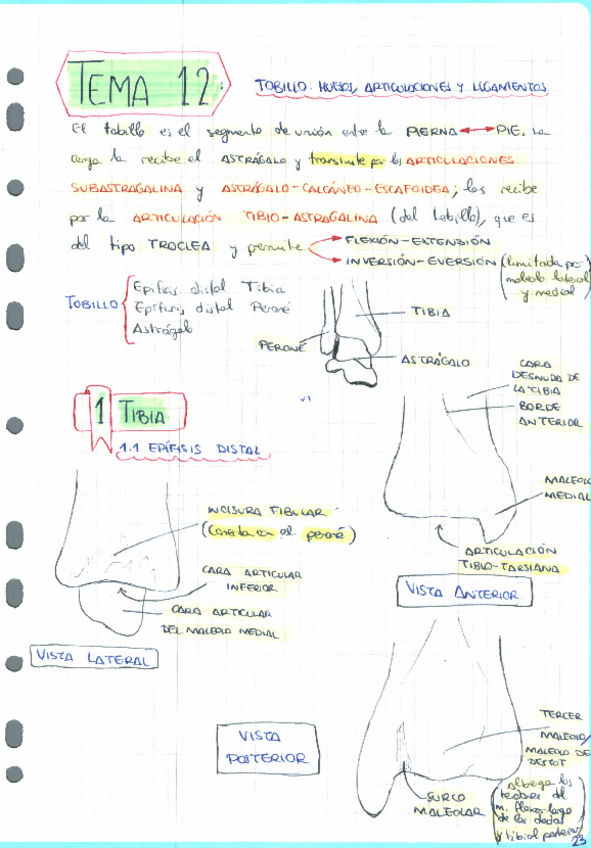 TEMA 12:
TOBILLO: HUESOS, ARTICULACIONES Y LIGAMENTOS
El tobillo es el segmento de unión entre la PIERNA ↔ PIE. La
carga la recibe el ASTRÁGALO y transmite por las ARTICULACIONES
SUBASTRAGALINA y ASTRÁGALO-CALCÁNEO-ESCAFOIDEA; las recibe
por la ARTICULACIÓN TIBIO-ASTRAGALINA (del tobillo), que es
del tipo TROCLEA y permite
FLEXIÓN-EXTENSIÓN
INVERSIÓN-EVERSIÓN (limitada por
maleolo lateral
y medial)
TOBILLO
Epífisis distal Tibia
Epífisis distal Peroné
Astrágalo
TIBIA
PERONÉ
ASTRÁGALO
1 TIBIA
1.1 EPÍFISIS DISTAL
CARA
DESNUDA DE
LA TIBIA
BORDE
ANTERIOR
MALEOLO
MEDIAL
ARTICULACIÓN
TIBIO-TARSIANA
VISTA ANTERIOR
INCISURA FIBULAR
(conecta con el peroné)
CARA ARTICULAR
INFERIOR
CARA ARTICULAR
DEL MALEOLO MEDIAL
VISTA LATERAL
VISTA
POSTERIOR
TERCER
MALEOLO/
MALEOLO DE
DESTOT
SURCO
MALEOLAR
(Alberga los
tendones del
m. flexor largo
de los dedos
y tibial posterior)
23